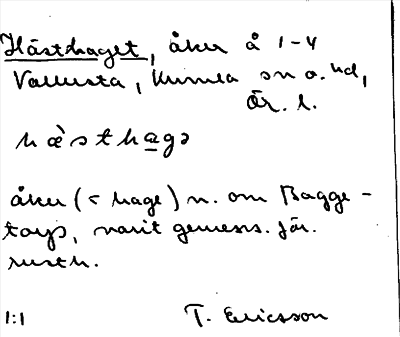 Hästhaget, åker å 1-4
Vallersta, Kumla sn o. hd,
Ör. l.
hæ̀sthag̲ə
åker (< hage) n. om Bagge-
torp, varit gemens. för
rusth.
1:1 T. Ericsson